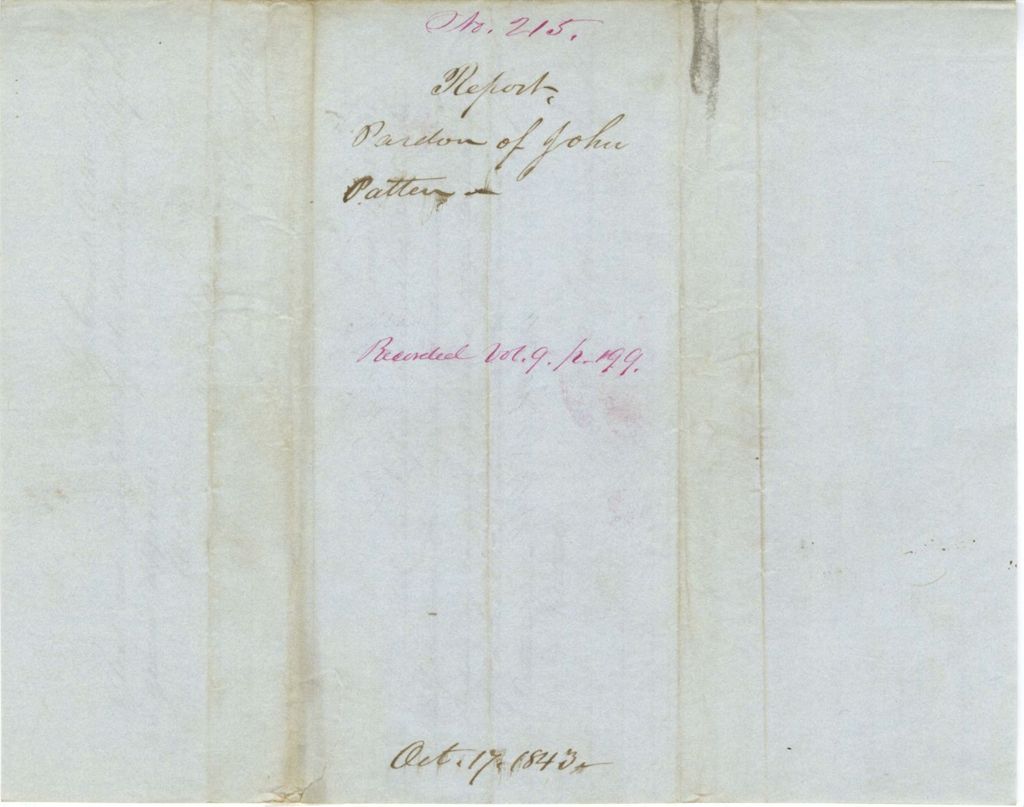 No. 215.
Report,
Pardon of John
Patten –
Recorded Vol. 9. p. 199.
Oct. 17. 1843.